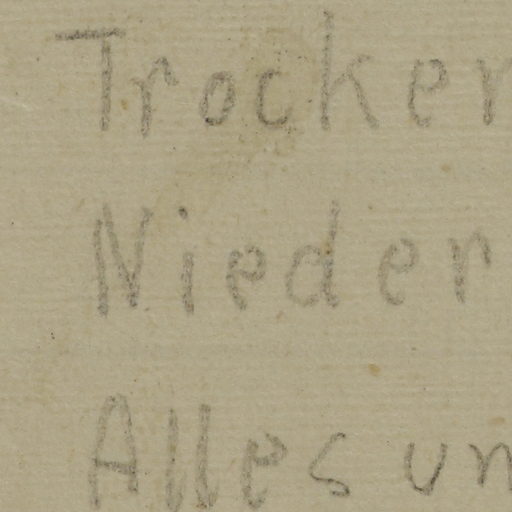 Trocker
Nieder
Alles un